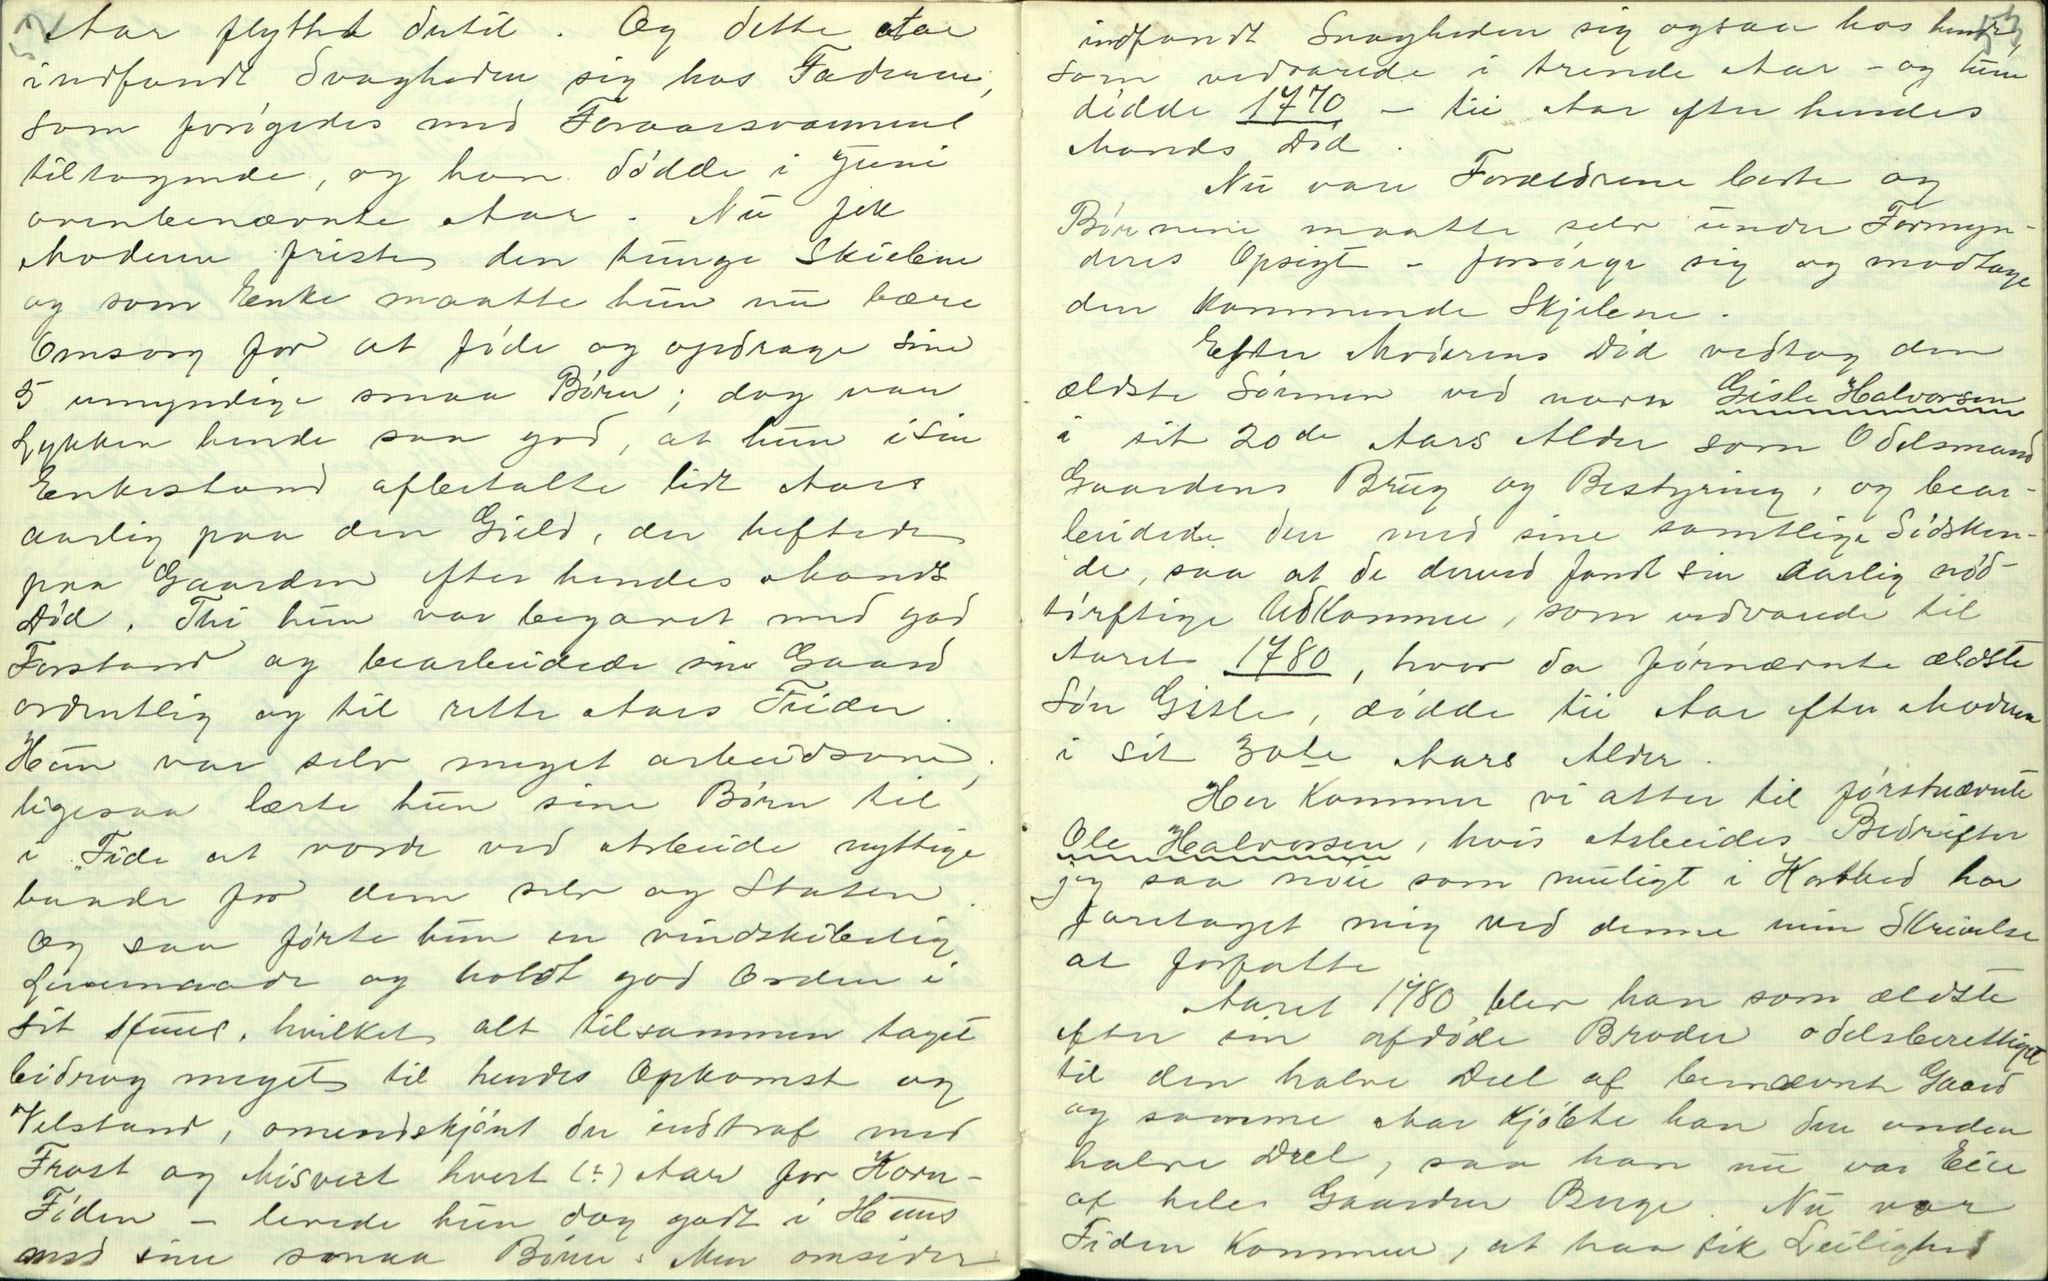 53
Aar flyttet dertil. Og dette Aar
indfandt Svagheden sig hos Faderen,
som forøgedes med Foraarsvarmens
tiltagende, og han dødde i Juni
ovenbenævnte Aar. Nu fik
Moderen friste den tunge Skiebne
og som Enke maatte hun nu bære
Omsorg for at føde og opdrage sine
5 umyndige smaa Børn; dog var
Lykken hende saa god, at hun i sin
Enkestand afbetalte lidt Aars
aarlig paa den Gield, der heftede
paa Gaarden efter hendes Mands
Død. Thi hun var begavet med god
Forstand og bearbeidede sin Gaard
ordentlig og til rette Aars Tiider.
Hun var selv meget arbeidsom,
ligesaa lærte hun sine Børn til
i Tide at vorde ved Arbeide nyttige
baade for dem selv og Staten.
Og saa førte hun en vindskibelig
Levemaade og holdt god Orden i
sit Huus, hvilket alt tilsammen taget
bidrog meget til hendes Opkomst og
Velstand, omendskjönt der indtraf med
Frost og Misvext hvert (?) Aar for Korn-
Tiden – levede hun dog godt i Huus
med sine smaa Børn. Men omsider
53
indfandt Svagheden sig ogsaa hos hende,
som vedvarede i trende Aar – og hun
dødde 1770 – tii Aar efter hendes
Mands Død.
Nu vare Forældrene borte og
Børnene maatte selv under Formyn-
deres Opsigt – forsørge sig og modtage
den kommende Skjebne.
Efter Moderens Død vedtog den
ældste Sønnen ved navn Gisle Halvorsen
i sit 20de Aars Alder som Odelsmand
Gaardens Brug og Bestyring, og bear-
beidede den med sine samtlige Sødsken-
de, saa at de derved fandt sin aarlig nød-
tørftige Udkomme, som vedvarede til
Aaret 1780, hvor da førnævnte ældste
Søn Gisle, dødde tii Aar efter Moderen
i sit 30te Aars Alder.
Her kommer vi atter til førstnævnte
Ole Halvorsen, hvis Arbeides Bedrifter
jeg saa nøie som muligt i Korthed har
foretaget mig ved denne min Skrivelse
at forfatte.
Aaret 1780 blev han som ældste
efter sin afdøde Broder odelsberettiget
til den halve Deel af benævnte Gaard
og samme Aar kjøbte han den anden
halve Deel, saa han nu var Eier
af hele Gaarden Berge. Nu var
Tiden kommen, at han fik Leilighed